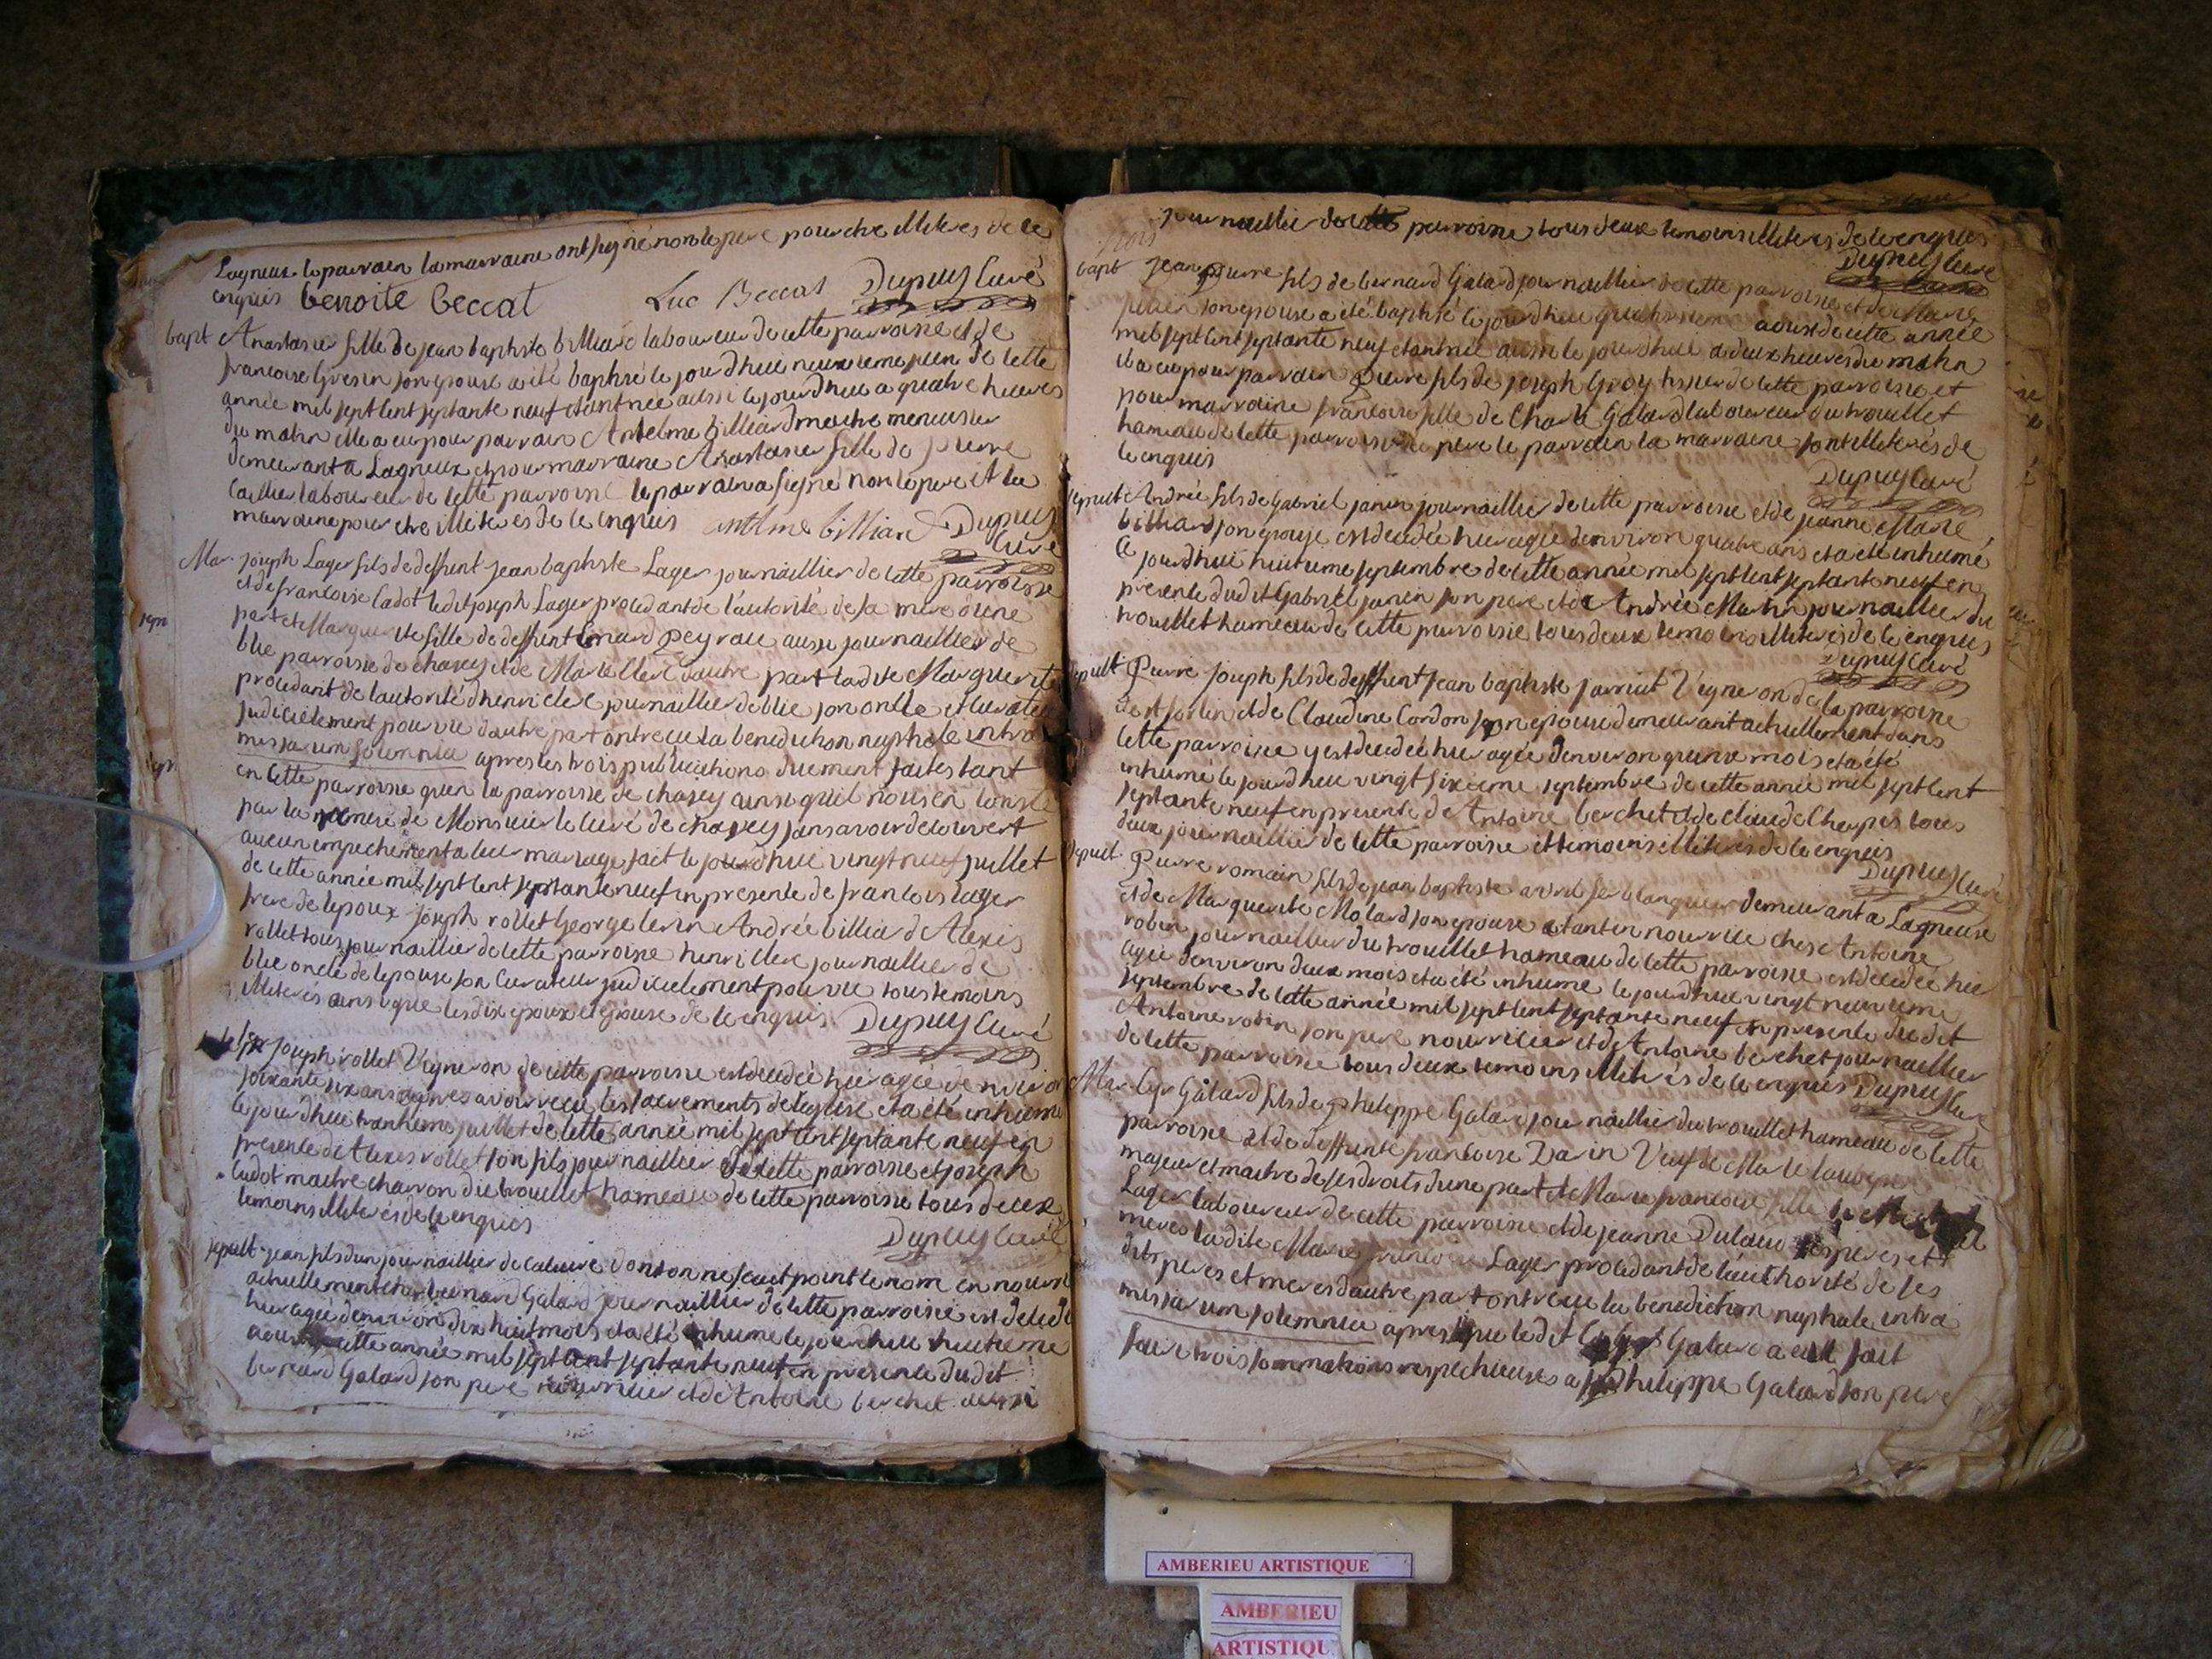 Lagneux le parrain la marraine ont signé non le pere pour etre illiteres de ce
enquis benoite beccat Luc Beccat Dupuy Curé
bapt Anastasie fille de jean baptiste billiard laboureur de cette parroisse et de
francoise Gresin son epouse a été baptisée le jourdhui neuvieme juin de cette
année mil sept cent septante neuf etant née aussi le jourdhui a quatre heures
du matin elle a eu pour parrain Antelme billiard maitre menusier
demeurant a Lagneux et pour marraine Anastasie fille de pierre
laboureur de cette parroisse le parrain a signé non le pere et la
marraine pour etre illiteres de ce enquis antelme billiard Dupuy
Curé
Mar joseph Lager fils de deffunt jean baptiste Lager journaillier de cette parroisse
et de francoise Cadot ledit joseph Lager procedant de l'autorité de sa mere d'une
part et Marguerite fille de deffunt peyrau aussi journaillier de
blie parroisse de chasey et de Marie Clerc d'autre part ladite Marguerite
procedant de l'autorité d'henri clerc journaillier de blie son oncle et curateur
judicielement pourvue d'autre part ont recu la benediction nuptiale intra
missarum solemnia apres les trois publications duement faites tant
en cette parroisse qu'en la parroisse de chasey ainsi qu'il nous en conste
par la remise de Monsieur le curé de chasey sans avoir decouvert
aucun empechement a leur mariage fait le jourdhui vingt neuf juillet
de cette année mil sept cent septante neuf en presence de francois lager
frere de lepoux joseph rollet George Andrée billiard Alexis
rollet tous journaillier de cette parroisse henri clerc journaillier de
blie oncle de lepouse son curateur judicielement pourvue tous temoins
illiterés ainsi que lesdix epoux et epouse de ce enquis Dupuy Curé
joseph rollet Vigneron de cette parroisse est decedée hier agée denviron
soixante six ans apres avoir recu les sacrements de l'eglise et a eté inhumé
le jourdhui juillet de cette année mil sept cent septante neuf en
presence de Alexis rollet son fils journaillier de cette parroisse et joseph
Cadot maitre charron du trouillet hameau de cette parroisse tous deux
temoins illiterés de ce enquis
Dupuy Curé
sepult jean fils dun journaillier de caluire dont on ne scait point le nom en nourrice
actuellement chez bernard Galard journaillier de cette parroisse est decedé
hier agée denviron dix huit mois et a été inhumé le jourdhui huitieme
aout cette année mil sept cent septante neuf en presence dudit
bernard Galard son pere nourricier et de Antoine berchet aussi
journaillier de cette parroisse tous deux temoins illiterés de ce enquis
Dupuy Curé
bapt jean pierre fils de bernard Galard journaillier de cette parroisse et de Marie
son epouse a été baptisé le jourdhui aoust de cette année
mil sept cent septante neuf etant née aussi le jourdhui a deux heures du matin
il a eu pour parrain pierre fils de joseph Groy tissier de cette parroisse et
pour marraine francoise fille de Charle Galard laboureur du trouillet
hameau de cette parroisse le pere le parrain la marraine sont illiterés de
ce enquis
Dupuy Curé
sepult Andrée fils de Gabriel janin journaillier de cette parroisse et de jeanne Marie
billiard son epouse est decedée hier agée denviron quatre ans et a eté inhumé
ce jourdhui huitieme septembre de cette année mil sept cent septante neuf en
presence dudit Gabriel janin son pere et de Andrée Martin journaillier du
trouillet hameau de cette parroisse tous deux temoins illiterés de ce enquis
Dupuy Curé
sepult Pierre joseph fils de deffunt jean baptiste Vigneron de la parroisse
de st sorlin et de Claudine Cordon son epouse demeurant actuellement dans
cette parroisse y est decedée hier agée denviron quinze mois et a été
inhumé le jourdhui vingt sixieme septembre de cette année mil sept cent
septante neuf en presence de Antoine berchet et de claude Cherpis tous
deux journaillier de cette parroisse et temoins illiterés de ce enquis
Dupuy Curé
sepult Pierre romain fils de jean baptiste demeurant a Lagneux
et de Marguerite Molard son epouse etant en nourrice chese Antoine
robin journaillier du trouillet hameau de cette parroisse est decedée hier
agée denviron deux mois et a été inhumé le jourdhui vingt neuvieme
septembre de cette année mil sept cent septante neuf en presence dudit
Antoine robin son pere nourricier et de Antoine berchet journaillier
de cette parroisse tous deux temoins illiterés de ce enquis Dupuy Curé
Mar Galard fils de pheleppe Galard journaillier du trouillet hameau de cette
parroisse et de deffunte francoise Zarin Veuf de Marie
majeur et maitre de ses droits d'une part et Marie francoise fille de
Lager laboureur de cette parroisse et de jeanne Dulau ses peres et
meres ladite Marie francoise Lager procedant de l'authorité de ses
dits peres et meres d'autre part ont recu la benediction nuptiale intra
missarum solemnia apres que ledit Galard a eut fait
faire trois sommations respectueuses a pheleppe Galard son pere
AMBERIEU ARTISTIQUE
AMBERIEU
ARTISTIQU